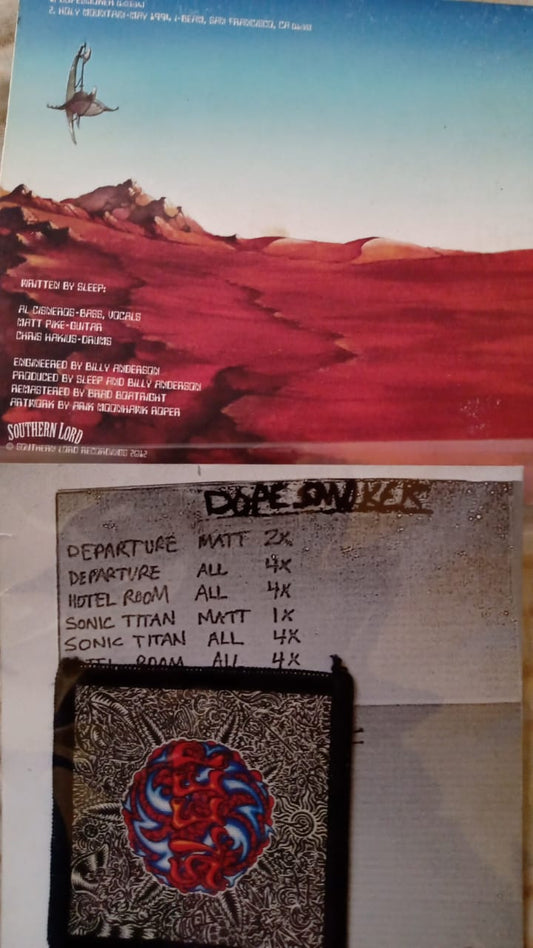 1. DOPESMOKER
2. HOLY MOUNTAIN-MAY 1994, I-BEAM, SAN FRANCISCO, CA
WRITTEN BY SLEEP:
AL CISNEROS-BASS, VOCALS
MATT PIKE-GUITAR
CHRIS HAKIUS-DRUMS
ENGINEERED BY BILLY ANDERSON
PRODUCED BY SLEEP AND BILLY ANDERSON
REMASTERED BY BRAD BOATRIGHT
ARTWORK BY ARIK MOONHAWK ROPER
SOUTHERN LORD
© SOUTHERN LORD RECORDINGS 2012
DOPESMOKER
DEPARTURE MATT 2X
DEPARTURE ALL 4X
HOTEL ROOM ALL 4X
SONIC TITAN MATT 1X
SONIC TITAN ALL 4X
HOTEL ROOM ALL 4X